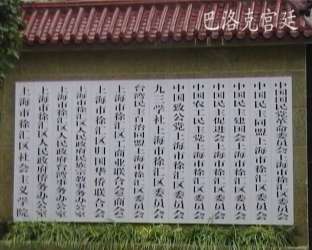 巴洛克宫廷
中国国民党革命委员会上海市徐汇区委员会
中国民主同盟上海市徐汇区委员会
中国民主建国会上海市徐汇区委员会
中国民主促进会上海市徐汇区委员会
中国农工民主党上海市徐汇区委员会
中国致公党上海市徐汇区委员会
九三学社上海市徐汇区委员会
台湾民主自治同盟上海市徐汇区委员会
上海市徐汇区工商业联合会(商会)
上海市徐汇区归国华侨联合会
上海市徐汇区人民政府民族宗教事务办公室
上海市徐汇区人民政府台湾事务办公室
上海市徐汇区人民政府侨务办公室
上海市徐汇区社会主义学院